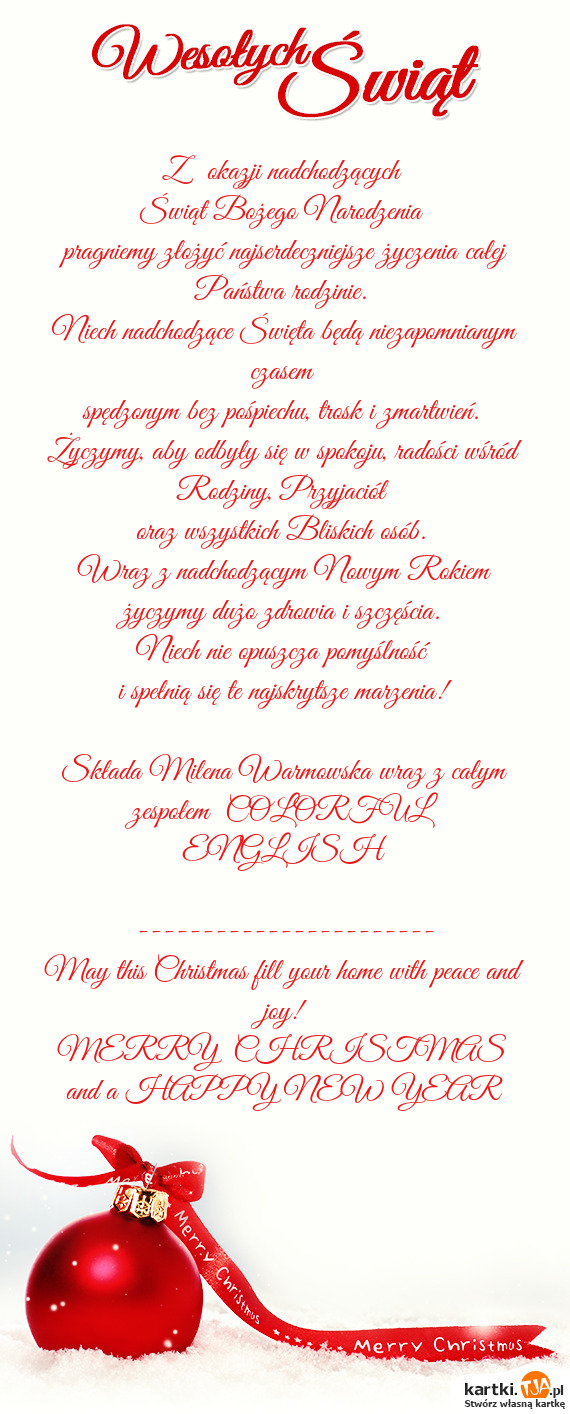 Wesołych Świąt
Z okazji nadchodzących
Świąt Bożego Narodzenia
pragniemy złożyć najserdeczniejsze życzenia całej
Państwa rodzinie.
Niech nadchodzące Święta będą niezapomnianym
czasem
spędzonym bez pośpiechu, trosk i zmartwień.
Życzymy, aby odbyły się w spokoju, radości wśród
Rodziny, Przyjaciół
oraz wszystkich Bliskich osób.
Wraz z nadchodzącym Nowym Rokiem
życzymy dużo zdrowia i szczęścia.
Niech nie opuszcza pomyślność
i spełnią się te najskrytsze marzenia!
Składa Milena Warmowska wraz z całym
zespołem COLORFUL
ENGLISH
-----------------------
May this Christmas fill your home with peace and
joy!
MERRY CHRISTMAS
and a HAPPY NEW YEAR
Merry Christmas
Merry Christmas
kartki.TJA.pl
Stwórz własną kartkę